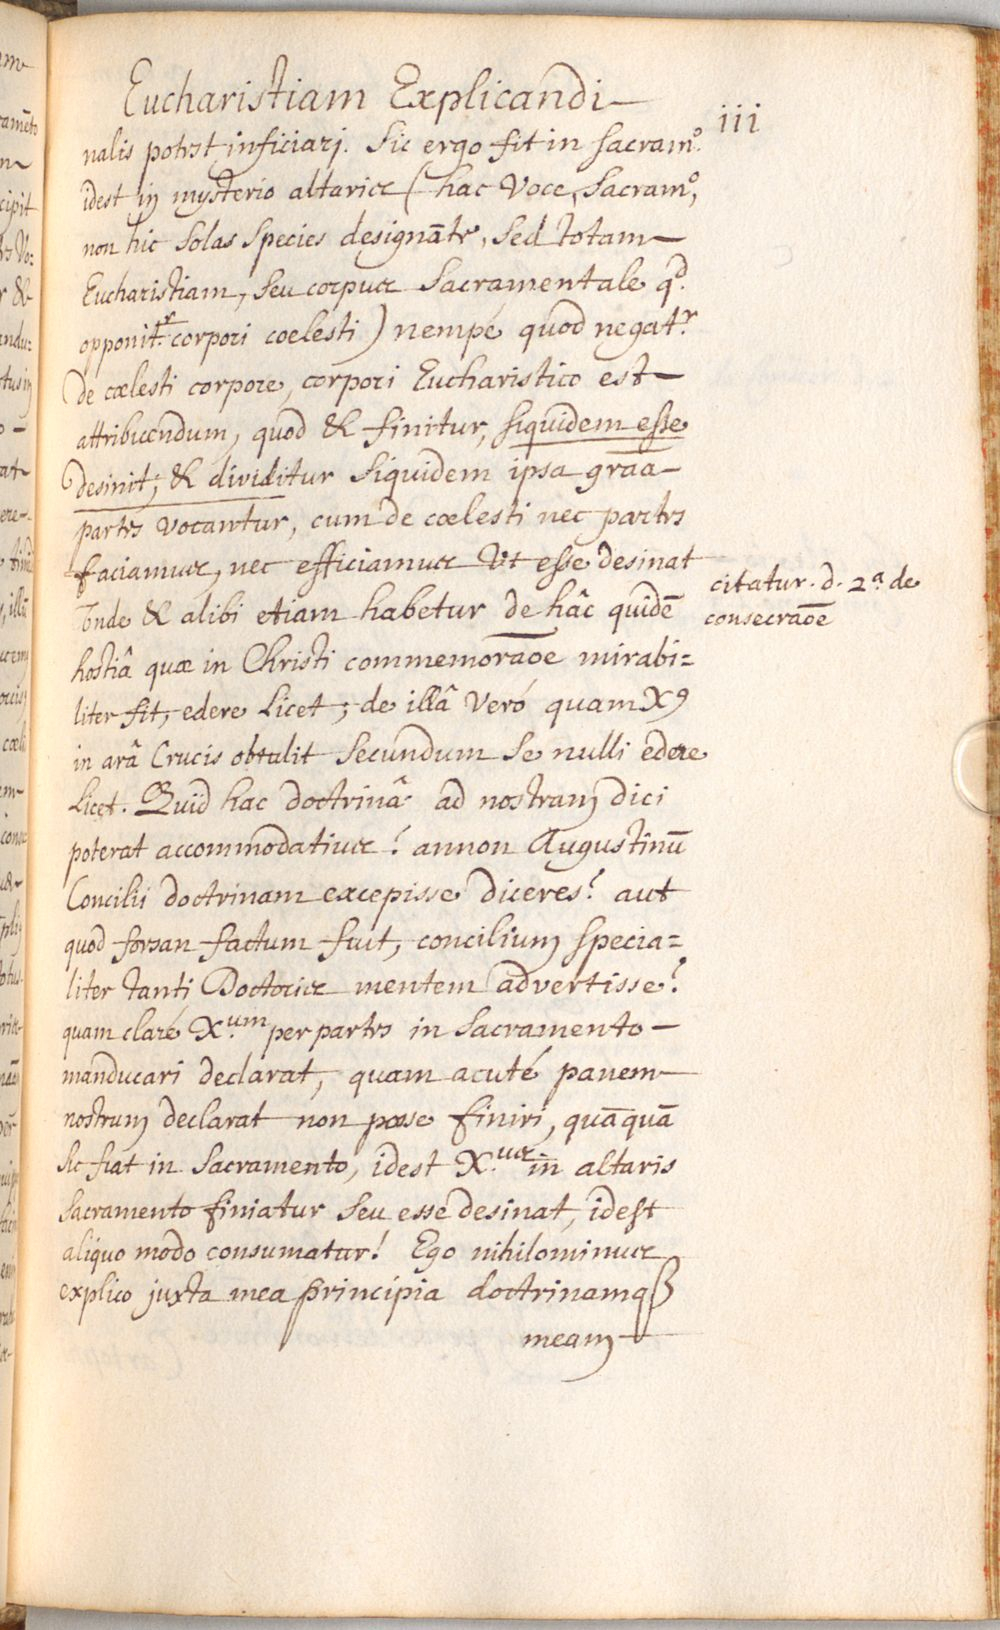 Eucharistiam Explicandi
iii
nalis potest inficiari. Sic ergo fit in sacramº.
idest in mysterio altaris (hac voce, sacramº,
non hic solas species designāte, sed totam
Eucharistiam, seu corpus sacramentale qd.
opponitr. corpori coelesti) nempé quod negatr.
de cœlesti corpore, corpori Eucharistico est
attribuendum, quod & finitur, siquidem esse
desinit; & dividitur siquidem ipsa graã
partes vocantur, cum de cœlesti nec partes
faciamus, nec efficiamus ut esse desinat
Unde & alibi etiam habetur de hâc quidē
citatur. d. 2ª. de
consecraõe
hostiâ quæ in Christi commemoraõe mirabi=
liter fit, edere licet; de illâ veró quam X9
in arâ Crucis obtulit secundum se nulli edere
licet. Quid hac doctrinâ ad nostram dici
poterat accommodatius? annon Augustinū
Concilii doctrinam excepisse diceres? aut
quod forsan factum fuit, concilium specia=
liter tanti Doctoris mentem advertisse?
quam claré X.um per partes in sacramento
manducari declarat, quam acuté panem
nostrum declarat non posse finiri, quāquā
sic fiat in sacramento, idest X.us in altaris
sacramento finiatur seu esse desinat, idest
aliquo modo consumatur! Ego nihilominus
explico juxta mea principia doctrinamqꝫ
meam